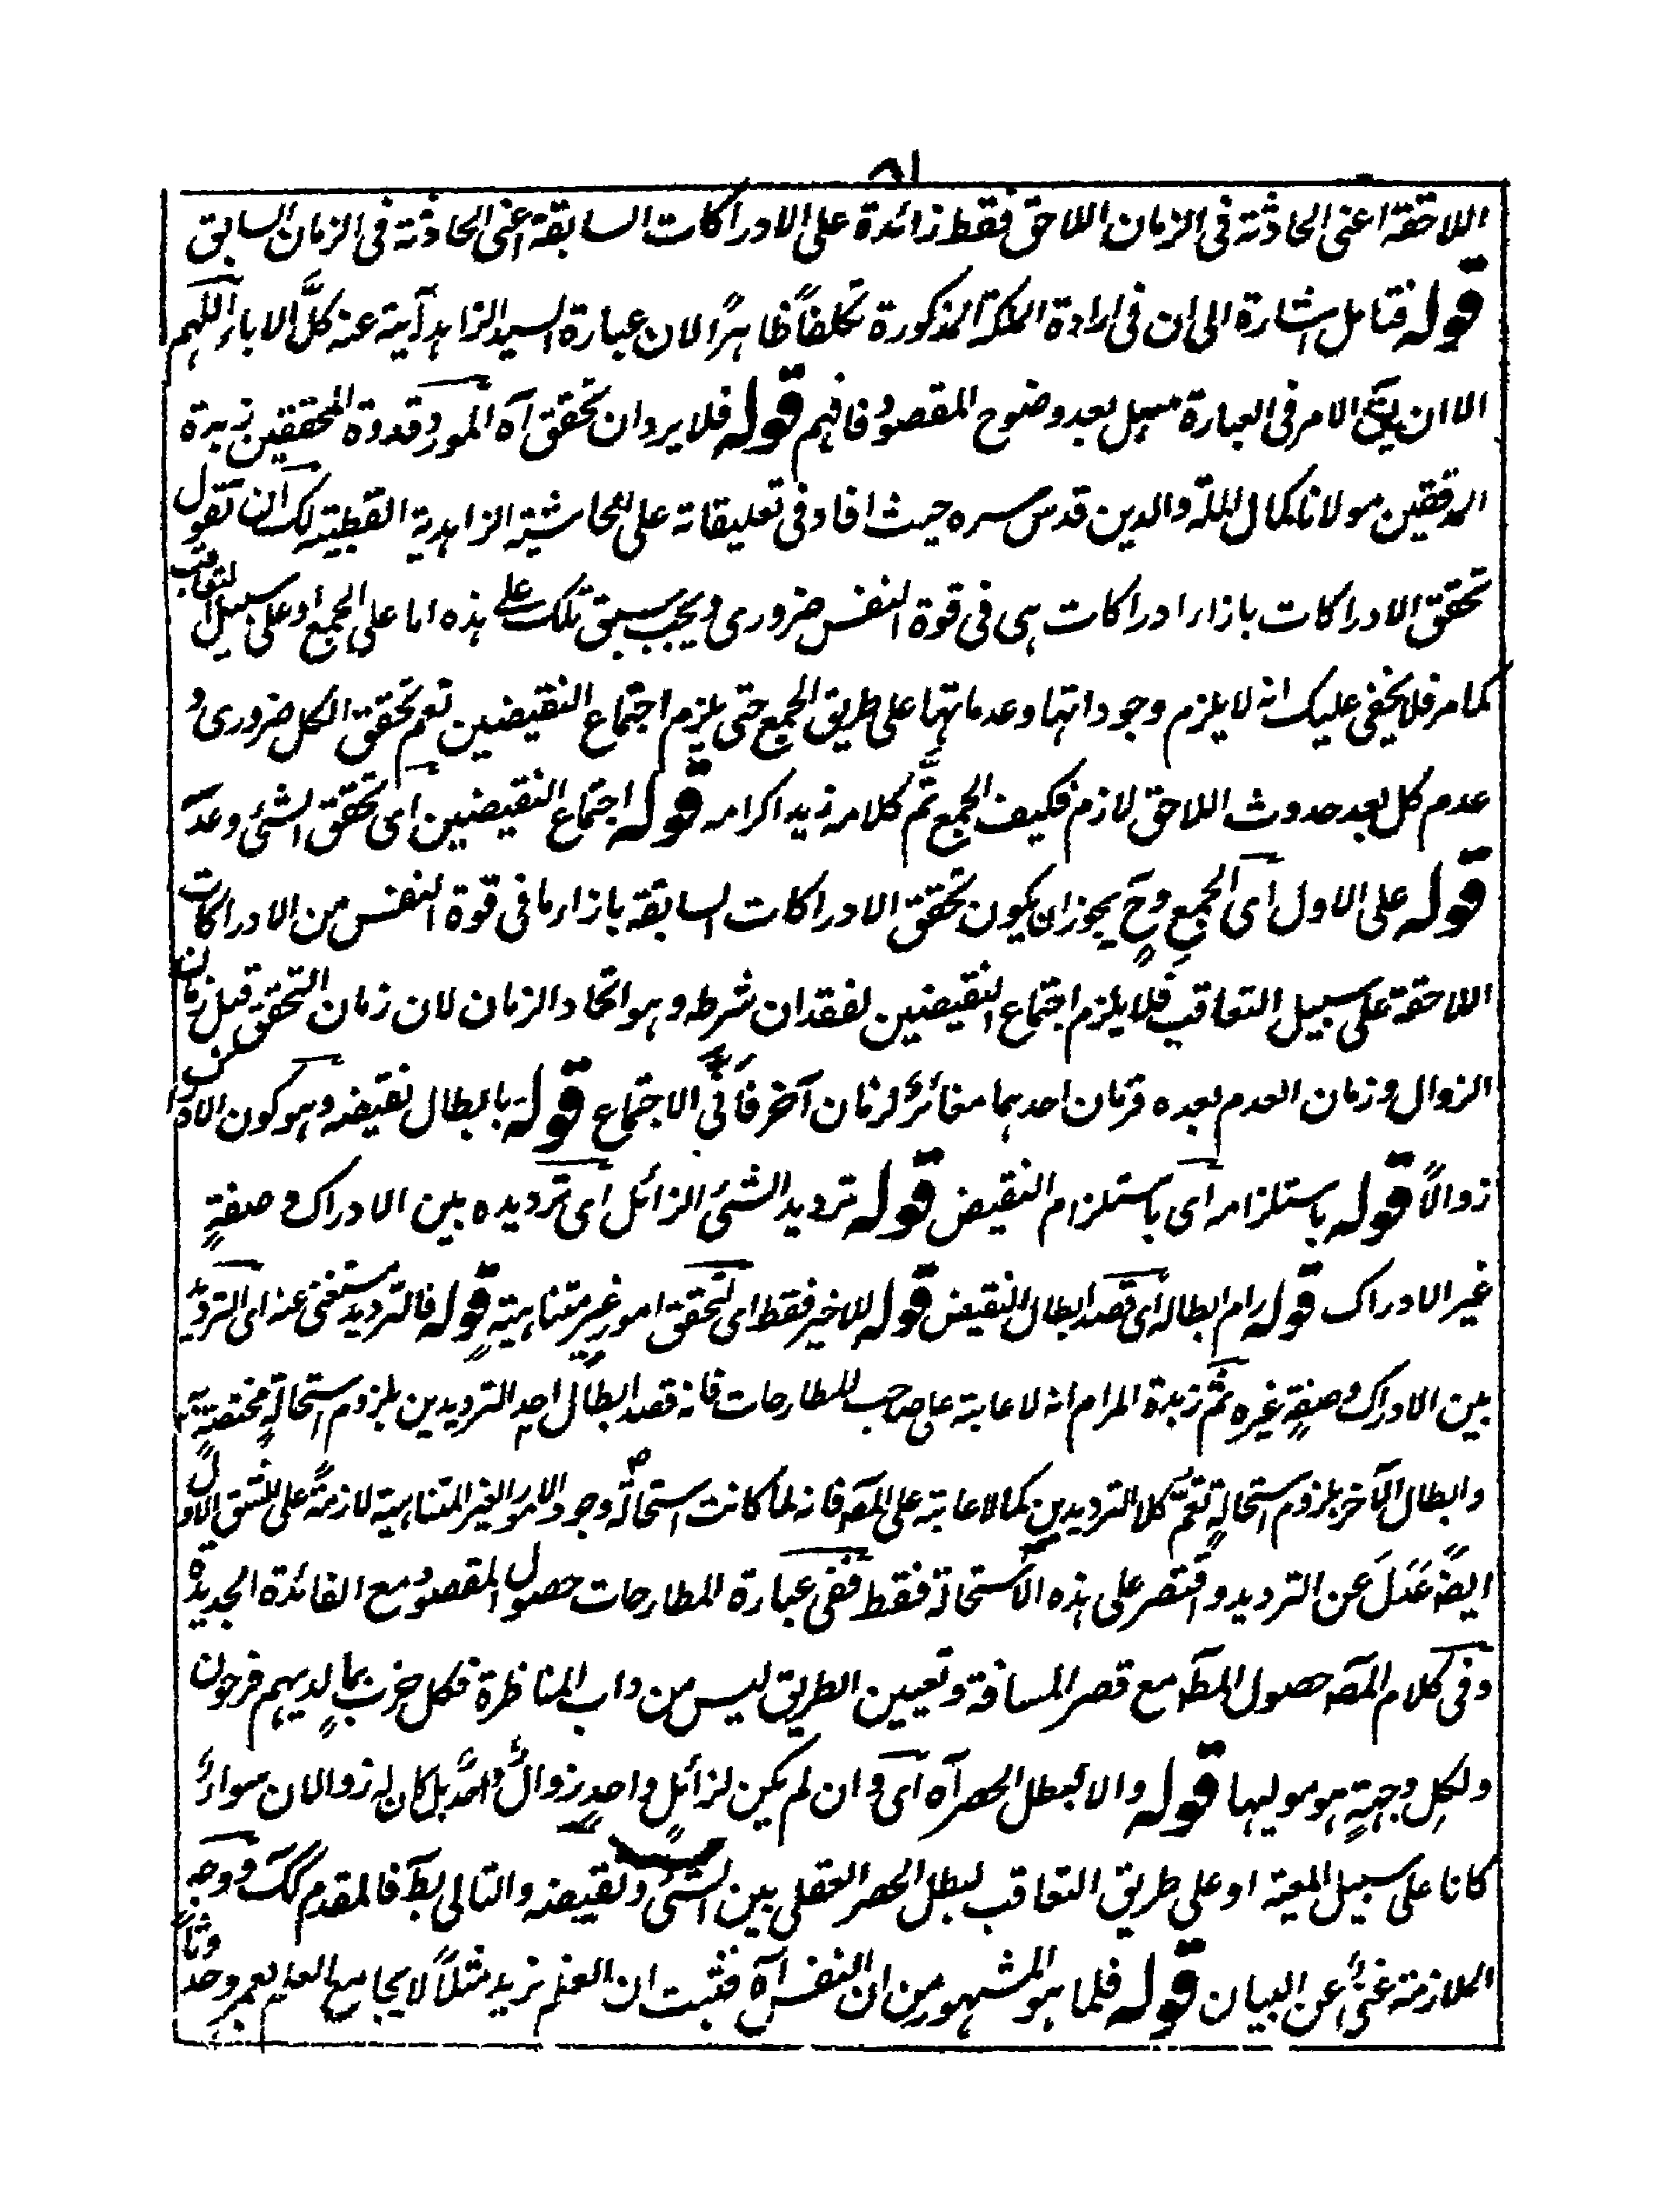 ٨١
اللاحقة اعنى الحادثة فى الزمان اللاحق فقط زائدة على الادراكات السابقة اعنى الحادثة فى الزمان السابق
قوله فتامل اشارة الى ان فى ارادة الملكة المذكورة تكلفاً ظاهرًا لان عبارة السيد الزاهد آبية عنه كلَّ الاباء اللهم
الا ان يقال الامر فى العبارة سهل بعد وضوح المقصود فافهم قوله فلا يرد ان تحقق آه المورد قدوة المحققين زبدة
المدققين مولانا كمال الملة والدين قدس سره حيث افاد فى تعليقاته على الحاشية الزاهدية القطبية لك ان تقول
تحقق الادراكات بازاء ادراكات هى فى قوة النفس ضرورى ويجب سبق تلك على هذه اما على الجمع او على سبيل التعاقب
كما مر فلا يخفى عليك انه لا يلزم وجوداتها وعدماتها على طريق الجمع حتى يلزم اجتماع النقيضين نعم تحقق الكل ضرورى و
عدم كل بعد حدوث اللاحق لازم فكيف الجمع تم كلامه زيد اكرامه قوله اجتماع النقيضين اى تحقق الشئ وعدمه
قوله على الاول اى الجمع وح يجوز ان يكون تحقق الادراكات السابقة بازاء ما فى قوة النفس من الادراكات
اللاحقة على سبيل التعاقب فلا يلزم اجتماع النقيضين لفقدان شرطه وهو اتحاد الزمان لان زمان التحقق قبل زمان
الزوال وزمان العدم بعده فزمان احدهما مغائرٌ لزمان آخر فانى الاجتماع قوله بابطال نقيضه وهو كون الادراك
زوالاً قوله باستلزامه اى باستلزام النقيض قوله ترديد الشئ الزائل اى ترديده بين الادراك وصفةٍ
غير الادراك قوله رام ابطاله اى قصد ابطال النقيض قوله للاخير فقط اى لتحقق امور غير متناهية قوله فالترديد مستغنى عنه اى الترديد
بين الادراك وصفةٍ غيره ثم زبدة المرام انه لا عابة على صاحب المطارحات فانه قصد ابطال احد الترديدين بلزوم استحالةٍ مختصةٍ به
وابطال الآخر بلزوم استحالةٍ تعم كلا الترديدين كما لا عابة على المصه فانه لما كانت استحالة وجود الامور الغير المتناهية لازمةً على الشق الاول
ايضاً عَدَلَ عن الترديد واقتصر على هذه الاستحالة فقط ففى عبارة المطارحات حصول المقصود مع الفائدة الجديدة
وفى كلام المصه حصول المطه مع قصر المسافة وتعيين الطريق ليس من داب المناظرة فكل حزب بما لديهم فرحون
ولكلٍ وجهةٍ هو موليها قوله والا لبطل الحصر آه اى وان لم يكن لزائلٍ واحدٍ زوالٌ واحدٌ بل كان له زوالان سواءٌ
كانا على سبيل المعية او على طريق التعاقب لبطل الحصر العقلى بين الشئ ونقيضه والتالى بط فالمقدم كك ووجه
الملازمة غنىٌ عن البيان قوله فلما هو المشهور من ان النفس آه فثبت ان العلم بزيد مثلاً لا يجامع العلم بعمرو حدوثاً